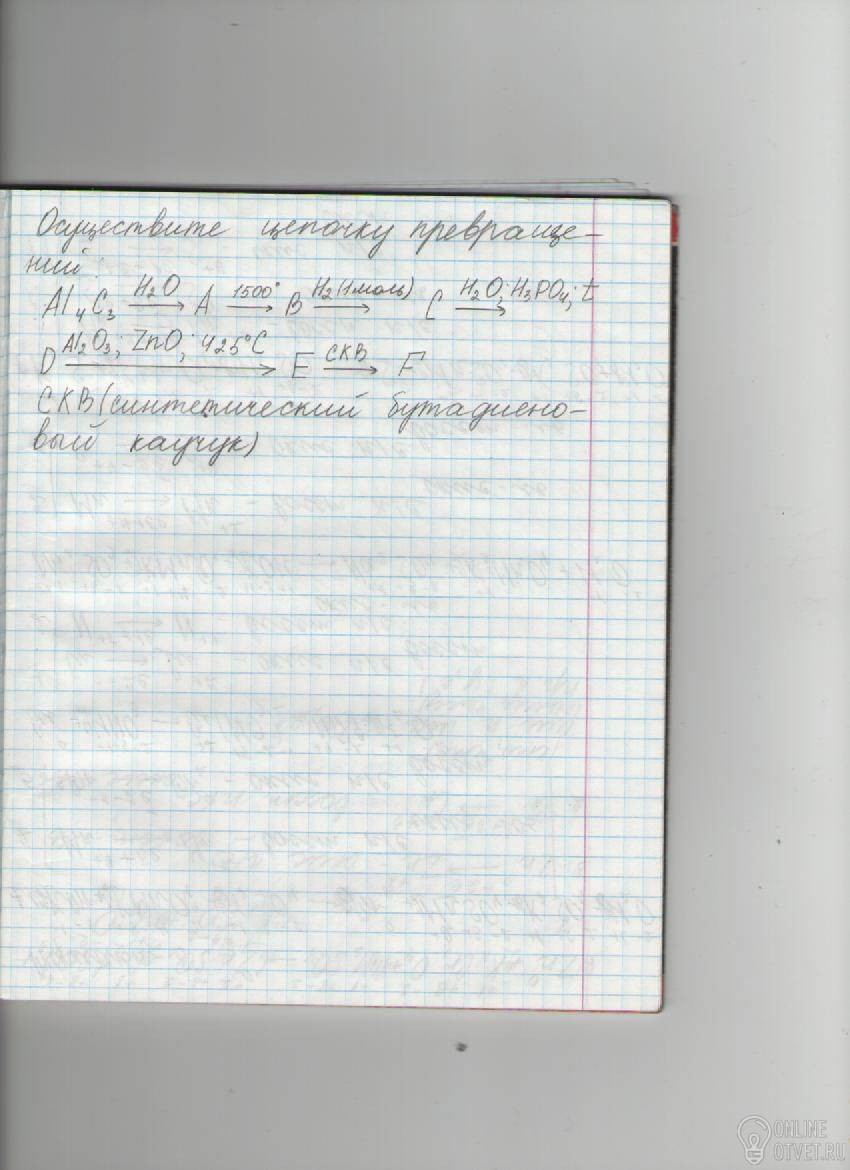 Осуществите цепочку превраще-
ний:
Al₄C₃ —H₂O→ A —1500°→ B —H₂(1моль)→ C —H₂O; H₃PO₄; t→
D —Al₂O₃; ZnO; 425°C→ E —СКВ→ F
СКВ (синтетический бутадиено-
вый каучук)
ONLINE
OTVET.RU